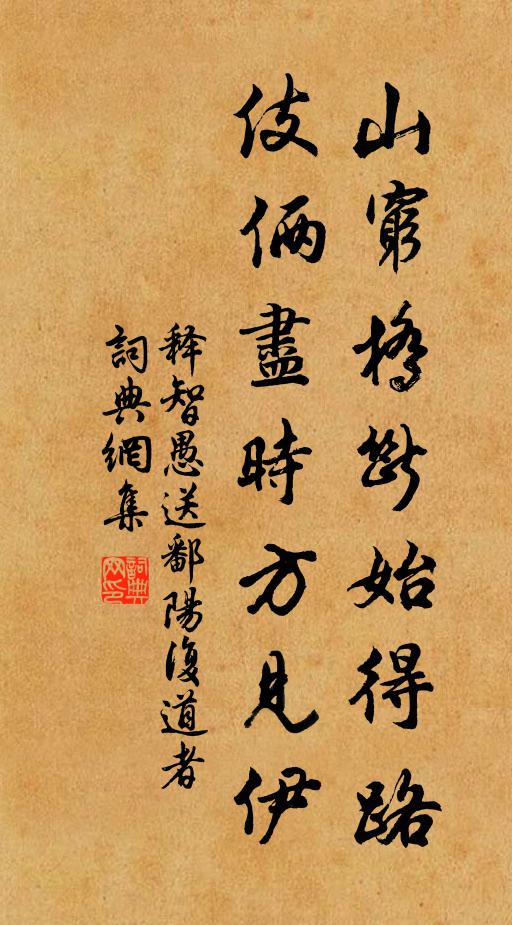 山窮橋斷始得路
伎倆盡時方見伊
释智愚送鄱陽復道者
詞典網集
詞典
网印